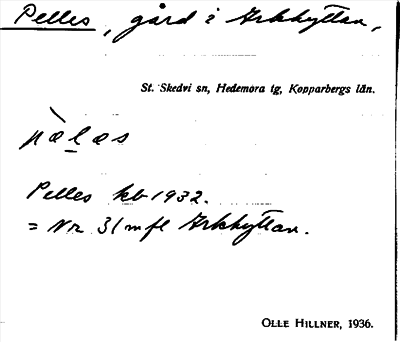 Pelles, gård i Arkhyttan,
St. Skedvi sn, Hedemora tg, Kopparbergs län.
pæ̀l̠æs
Pelles kb 1932.
= Nr 31 mfl Arkhyttan.
OLLE HILLNER, 1936.